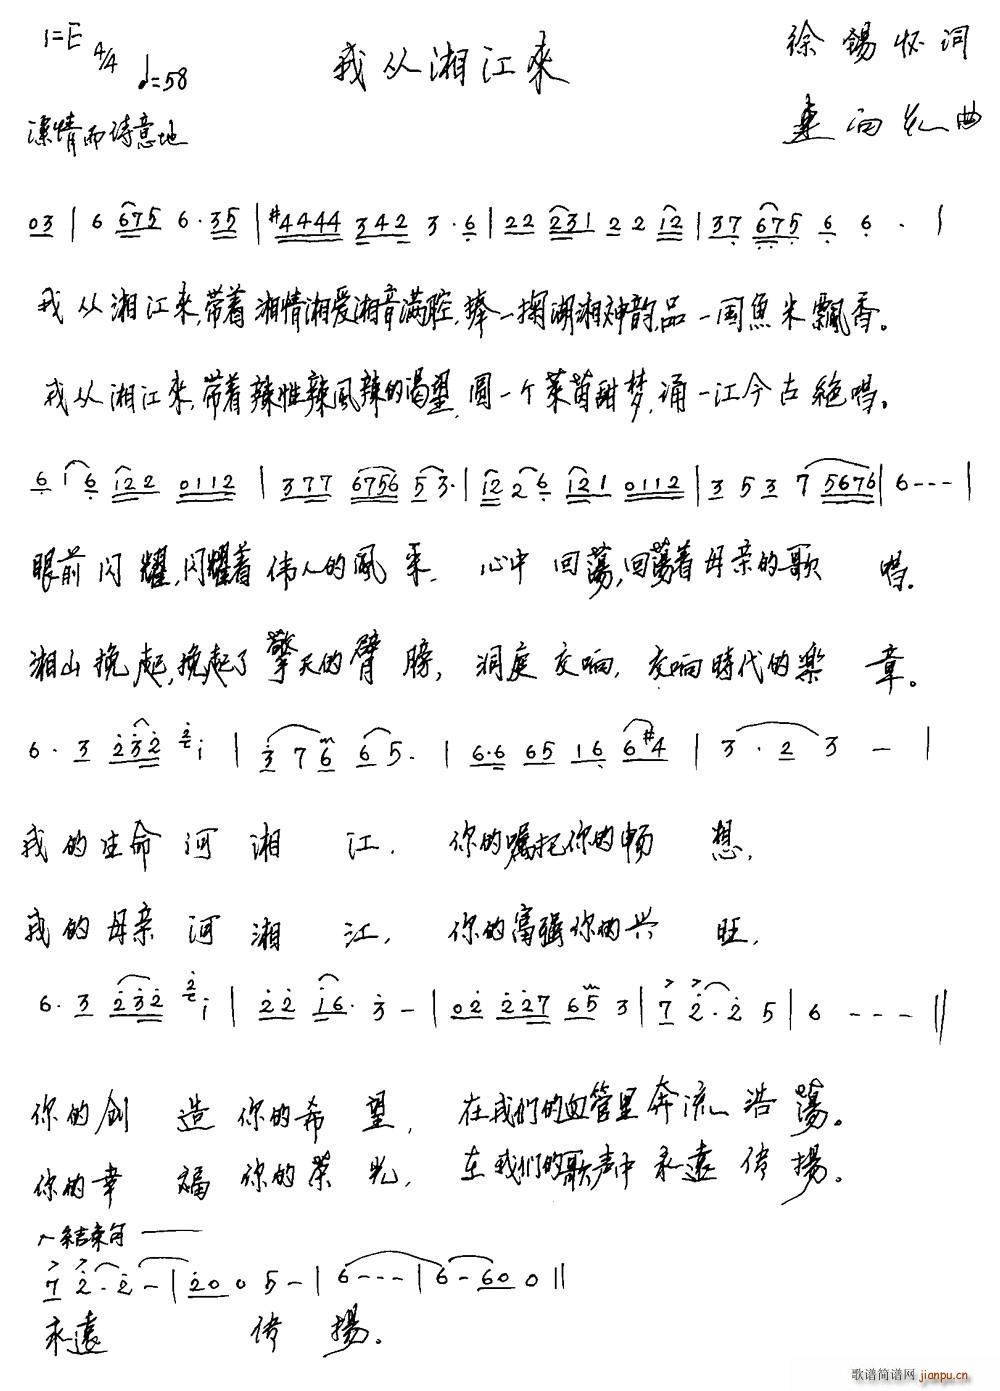 1=E 4/4 ♩=58
我从湘江來
徐錫怀词
深情而诗意地
曲
03 | 6 675 6·35 | #4444 342 3·6 | 22 231 22 12 | 37 675 6 6 · |
我从湘江來,带着湘情湘爱湘音满腔,捧一掬湖湘神韵,品一国魚米飄香。
我从湘江來,带着辣性辣風辣的渴望,圆一个莱茵甜梦,涌一江今古絶唱。
6 i 6 122 0112 | 377 6756 53· | 12 26 121 0112 | 3 5 3 7 5676 | 6--- |
眼前闪耀,闪耀着伟人的風采, 心中回蕩,回蕩着母亲的歌唱。
湘山挽起,挽起了擎天的臂膀, 洞庭交响,交响時代的樂章。
6· 3 232 2 i | 3 7 6 6 5· | 6·6 65 16 6#4 | 3·2 3 — |
我的生命河湘江, 你的嘱托你的畅想,
我的母亲河湘江, 你的富强你的兴旺,
6· 3 232 2 i | 22 i6· 3 — | 02 227 65 3 | 7 2·2 5 | 6 --- ||
你的創造你的希望, 在我们的血管里奔流浩蕩。
你的幸福你的荣光, 在我们的歌声中永遠传揚。
结束句 ——
7 2·2 — | 20 0 5 — | 6--- | 6-60 0 ||
永遠 传揚。
歌谱简谱网 jianpu.cn